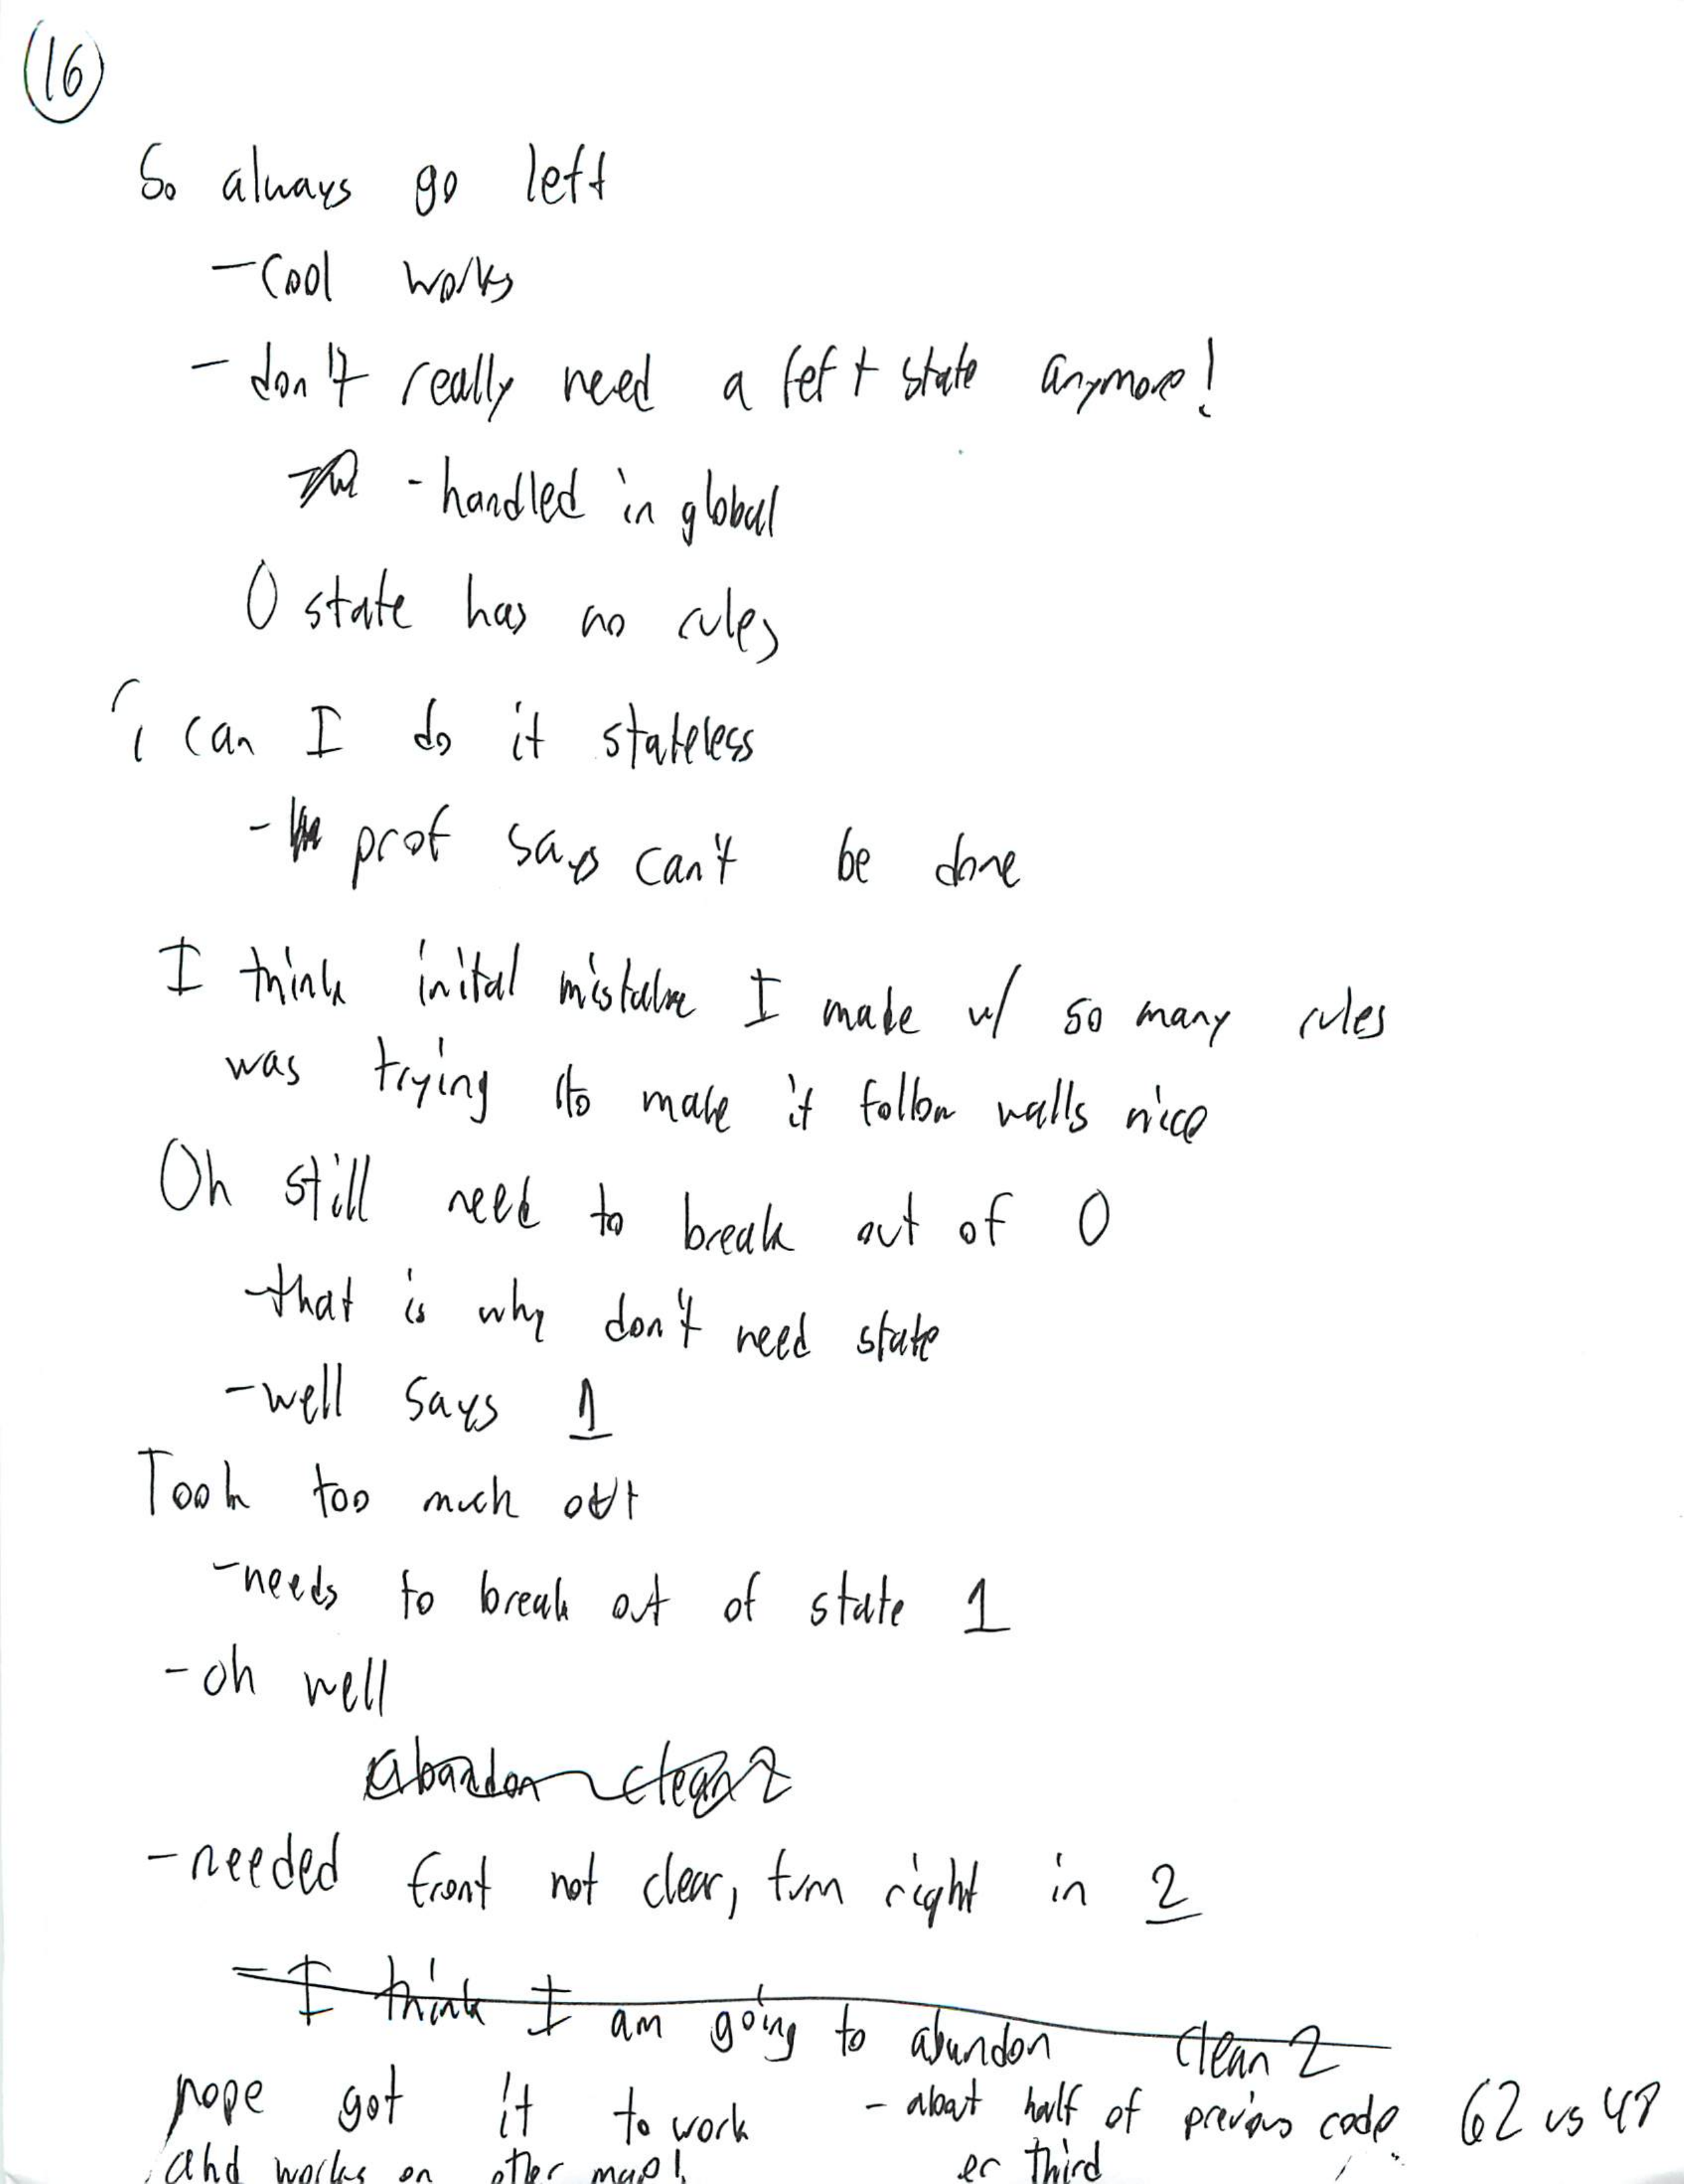 16
So always go left
- Cool works
- don't really need a left state anymore!
- handled in global
0 state has no rules
¿ can I do it stateless
- prof says can't be done
I think inital mistake I made w/ so many rules
was trying to make it follow walls nice
Oh still need to break out of 0
- that is why don't need state
- well says 1
Took too much out
- needs to break out of state 1
- oh well
abandon clean 2
- needed front not clear, turn right in 2
- I think I am going to abandon clean 2
nope got it to work - about half of previous code 62 vs 48
and works on other map! er third